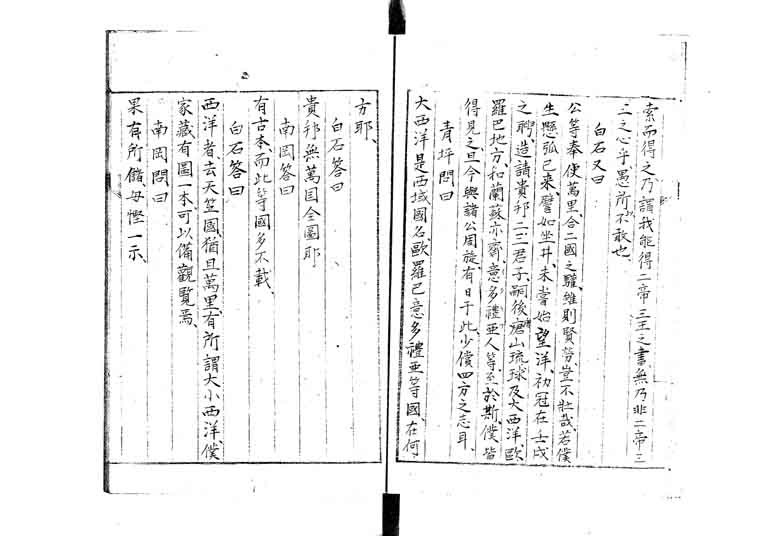 索而得之乃謂我能得二帝三王之書無乃非二帝三
王之心乎愚所不敢也
白石又曰
公等奉使萬里合二國之驩維則賢勞豈不壯哉若僕
生懸弧已来譬如坐井未嘗始望洋初冠在壬戌
之聘造請貴邦二三君子嗣後唐山琉球及大西洋歐
羅巴地方和蘭蘇亦齋意多禮亜人等至於斯僕皆
得見之且今與諸公周旋有日于此少償四方之志耳
青坪問曰
大西洋是西域國名歐羅巴意多禮亜等國在何
方耶
白石答曰
貴邦無萬国全圖耶
南岡答曰
有古本而此等國多不載
白石答曰
西洋者去天竺國猶且萬里有所謂大小西洋僕
家藏有圖一本可以備觀覧焉
南岡問曰
果有所儲毋慳一示